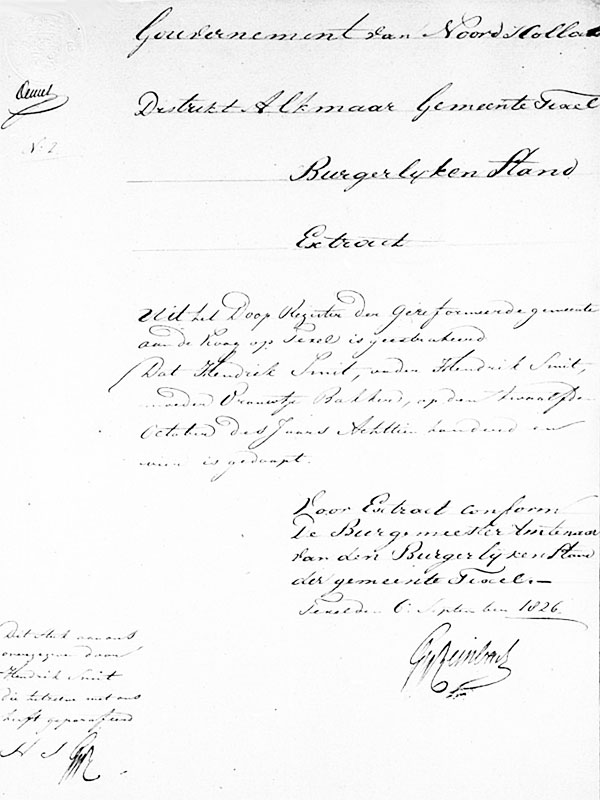 Gouvernement van Noord Holla
N. 2
Distrikt Alkmaar Gemeente Texel
Burgerlyken Stand
Extract
Uit het Doop Register der Gereformeerde gemeente
aan de Koog op Texel is geextraheerd
Dat Hendrik Smit, vader Hendrik Smit,
moeder Vrouwtje Bakker, op den twaalfden
October des Jaars Achttien honderd en
is gedoopt.
Voor Extract conform
De Burgemeester Amtenaar
van den Burgerlyken Stand
der gemeente Texel.—
Texel den 6 September 1826
Reinbach
Dit stuk aan ons
overgegeven door
Hendrik Smit
die hetzelve met ons
heeft geparafeerd
H S